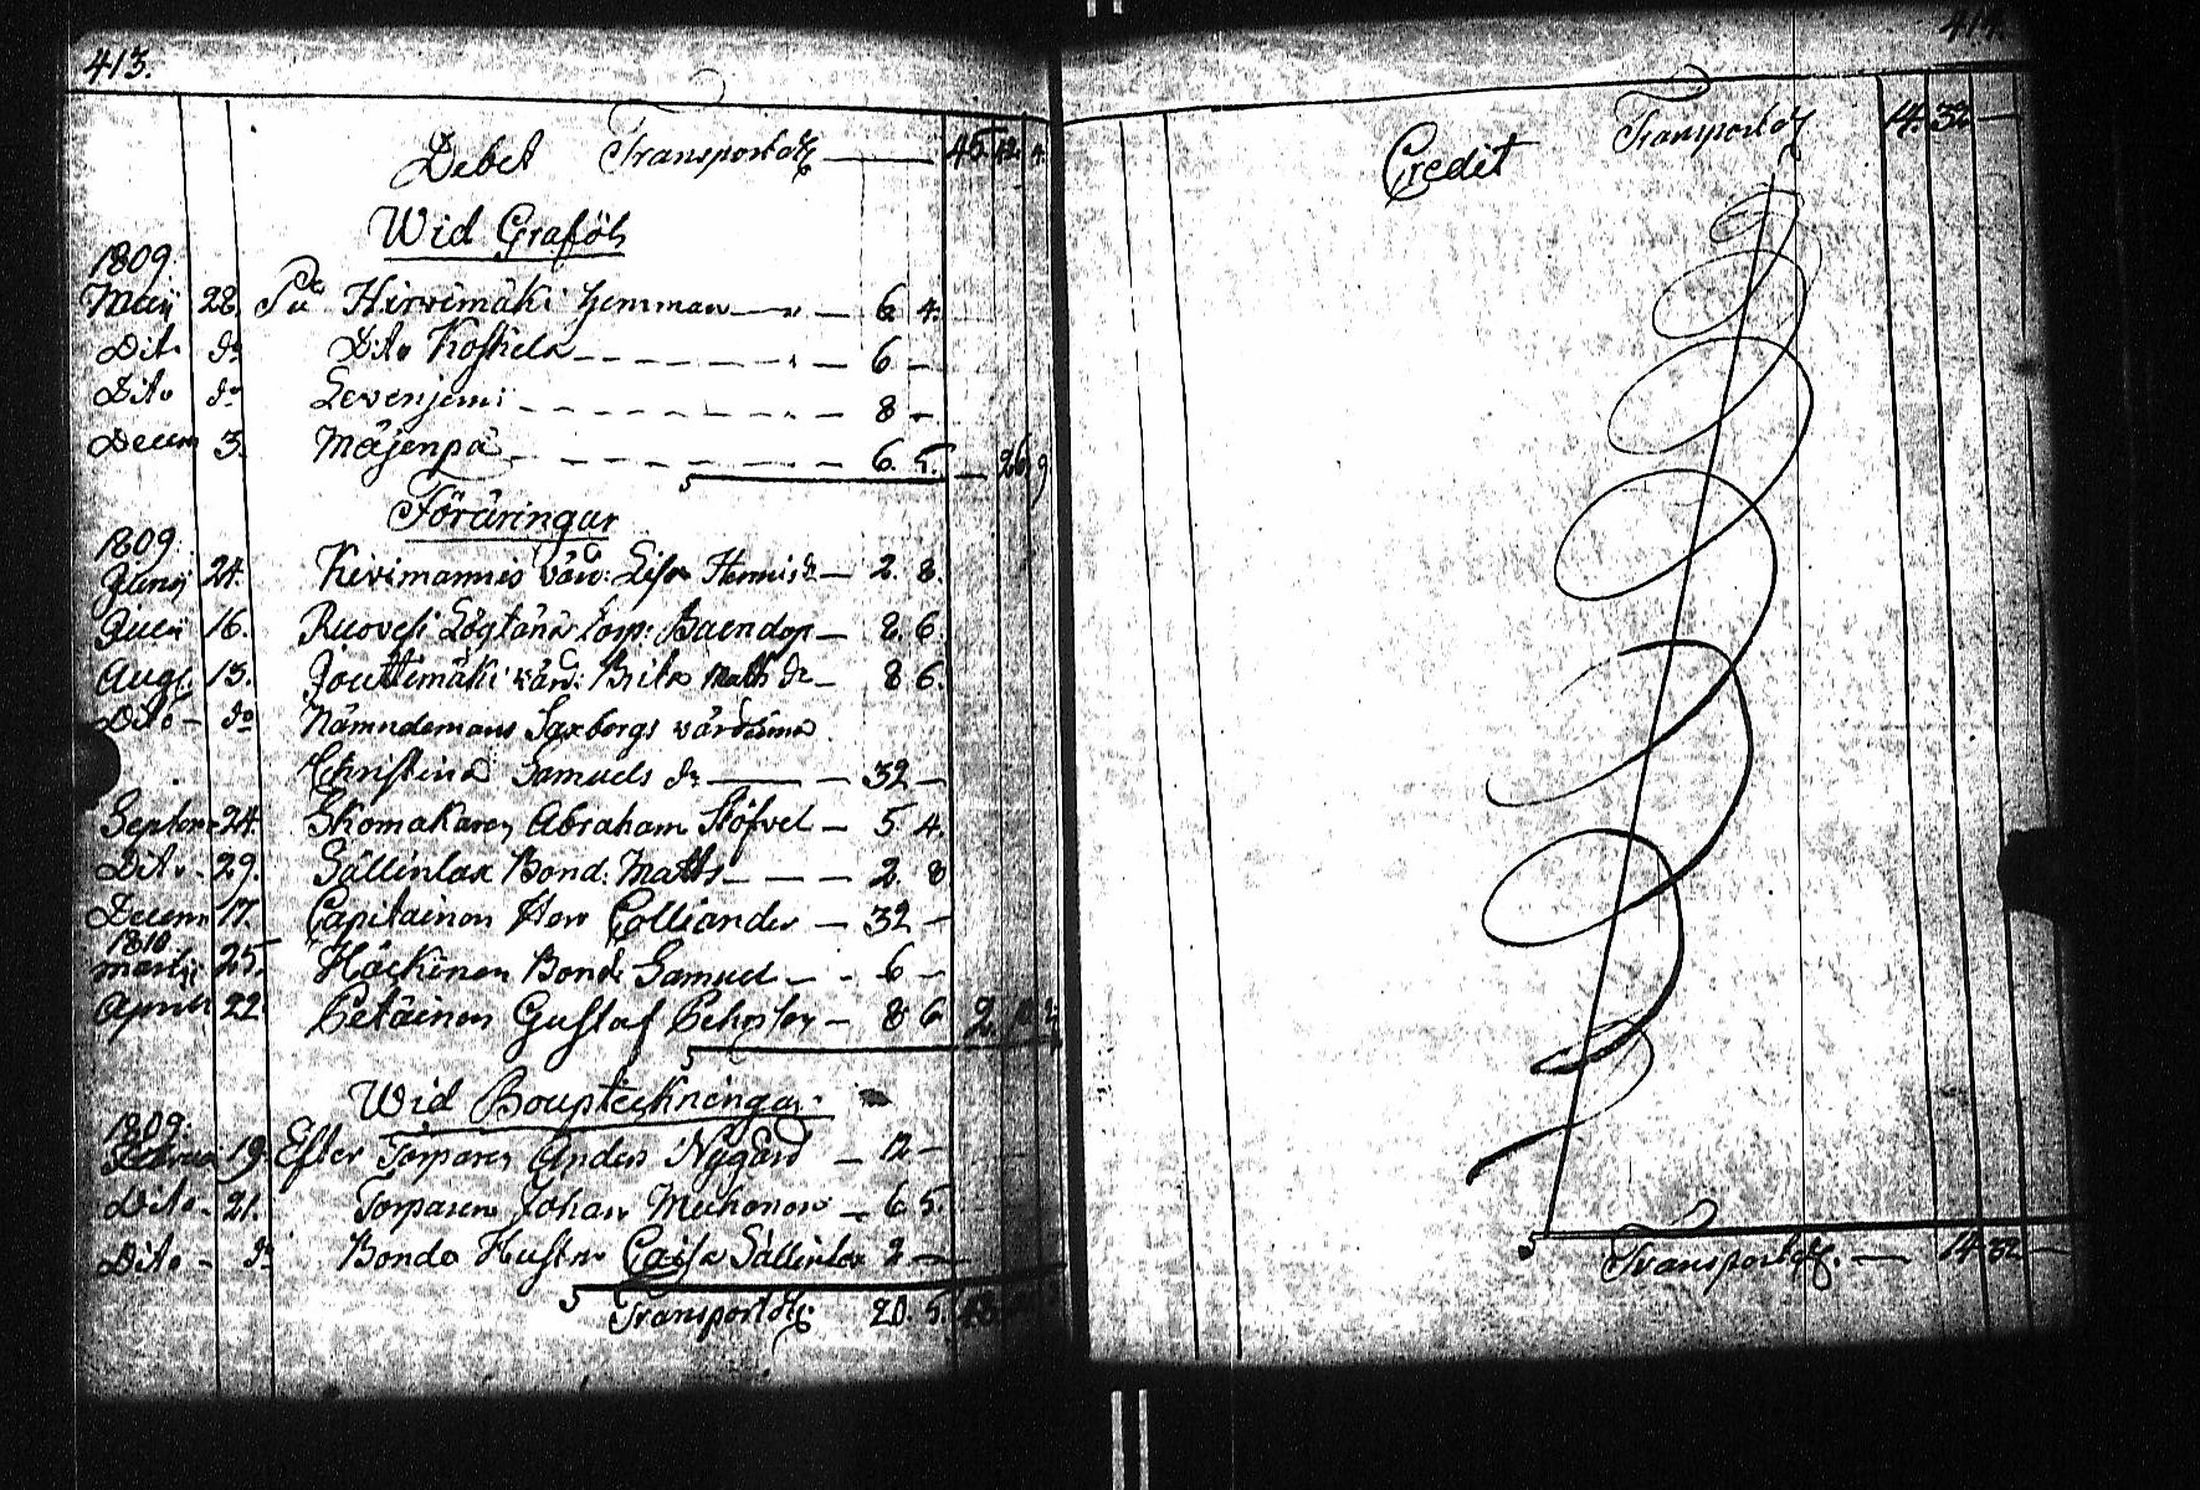 413.
Debet Transport 45. 12. 4.
Wid Graföls
1809.
Maij 28. På Hirvimäki Hemman — 6. 4.
Dito do Dito Koskela — 6 —
Dito do Levenjemi — 8 —
Decem 3. Mäjenpä — 6. 5. — 26. 9
Föräringar
1809.
Junij 24. Kivimannis värd: Lisa Hennis dr — 2. 8.
16. Ruovesi — 8. 6.
Aug. 13. Jouttimäki värd: Brita Matts dr — 8 6.
Dito — do Nämndemans Saxbergs värdinna
Christina Samuels dr — 32 —
Septem 24. Skomakaren Abraham Stöfvel — 5. 4.
Dito. 29. Sällinlax Bond: Matts — 2. 8
Decem 17. Capitainen Herr Colliander — 32 —
1810
Martij 25. Häckinen Bond: Samuel — 6 —
April 22. Petäinen Gustaf — 8 6 2.
Wid Boupteckningar
1809.
Februa 19. Efter Torparen Anders Nygård — 12 —
Dito. 21. Torparen Johan — 6. 5.
Dito — do Bonde Hustru Caisa Sällinlax 2 —
Transport 20. 5.
414.
Credit Transport 14. 32 —
Transport — 14. 32 —